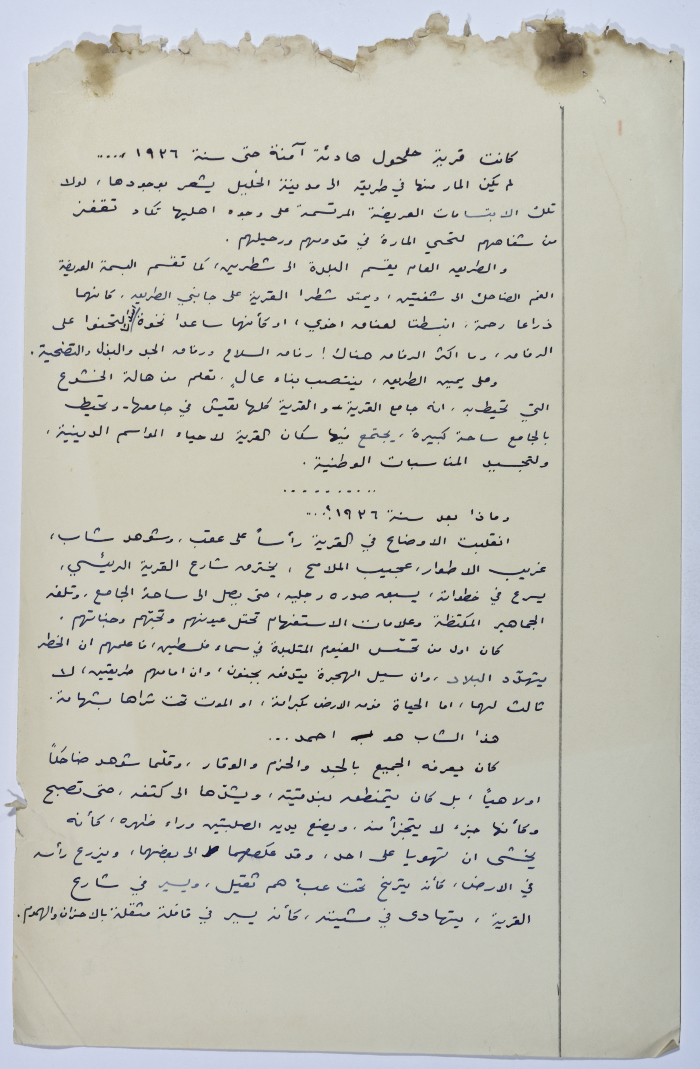 كانت قرية حلحول هادئة آمنة حتى سنة ١٩٣٦ ....
لم يكن المار منها في طريقه الى مدينة الخليل يشعر بوجودها، لولا
تلك الابتسامات العريضة المرتسمة على وجوه اهليها تكاد تقفز
من شفاههم لتحيي المارة في قدومهم ورحيلهم .
والطريق العام يقسم البلدة الى شطرين، كما تقسم البسمة العريضة
الفم الضاحك الى شفتين، ويمتد شطرا القرية على جانبي الطريق، كانهما
ذراعا رحمة، انبسطتا لعناق اخوي، او كأنهما ساعدا نخوة التحفوا على
الرفاق، وما اكثر الرفاق هناك! رفاق السلاح ورفاق الجد والبذل والتضحية.
وعلى يمين الطريق، ينتصب بناء عالٍ، تعلم من هالة الخشوع
التي تحيط به، انه جامع القرية - والقرية كلها تعيش في جامعها - وتحيط
بالجامع ساحة كبيرة، يجتمع فيها سكان القرية لاحياء المواسم الدينية،
ولتجسيد المناسبات الوطنية .
..........
وماذا بعد سنة ١٩٣٦؟ ...
انقلبت الاوضاع في القرية رأساً على عقب، وشوهد شاب،
غريب الاطوار، عجيب الملامح، يخترق شارع القرية الرئيسي،
يسرع في خطواته، يسبق صدره رجليه، حتى يصل الى ساحة الجامع، وتلقه
الجماهير المكتظة وعلامات الاستفهام تحتل عيونهم وتحيّهم وجباههم .
كان اول من تحسّس الغيوم المتلبدة في سماء فلسطين، فاعلمهم ان الخطر
يتهدّد البلاد، وان سيل الهجرة يتدفق بجنون، وان امامهم طريقين، لا
ثالث لهما، اما الحياة فوق الارض بكرامة، او الموت تحت ثراها بشهامة.
هذا الشاب هو احمد ...
كان يعرفه الجميع بالجد والحزم والوقار، وقلّما شوهد ضاحكاً
او لاهياً، بل كان يتمنطق بندقيته، ويشدّها الى كتفه، حتى تصبح
وكأنها جزء لا يتجزأ منه، ويضع يديه الصلبتين وراء ظهره، كأنه
يخشى ان تهويا على احد، وقد عكصهما الى بعضهما، ويزرع رأسه
في الارض، كأنه يترنح تحت عبْ هم ثقيل، ويسير في شارع
القرية، يتهادى في مشيته، كأنه يسير في قافلة مثقلة بالاحزان والهموم.